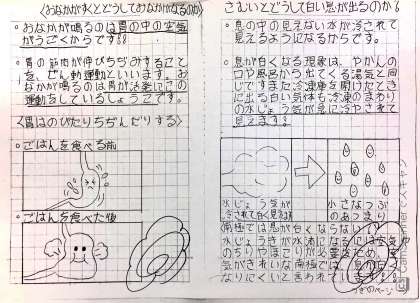 〈おなかがすくとどうしておなかがなるのか〉
◦おなかが鳴るのは胃の中の空気
がうごくからです!!
◦胃の筋肉が伸びちぢみすること
を、ぜん動運動といいます。お
なかが鳴るのは胃が活発にこの
運動をしているしょうこです。
〈胃はのびたりちぢんだりする〉
◦ごはんを食べる前
◦ごはんを食べた後
さむいとどうして白い息が出るのか
◦息の中の見えない水が冷されて
見えるようになるからです。
◦息が白くなる現象は、やかんの
口や風呂から出てくる湯気と同
じですまた冷凍庫を開けたとき
に出る白い気体も冷凍のまわり
の水じょう気が急に冷やされて
見えます!!
水じょう気が
冷されて白く見える
小さなつぶ
のあつまり
南極では息が白くならない!?
水じょうきが水滴になるには空気
のちりやほこりが必要なため、空
気がきれいな南極では、息が白く
なりにくいと言われています。
つぎのページ